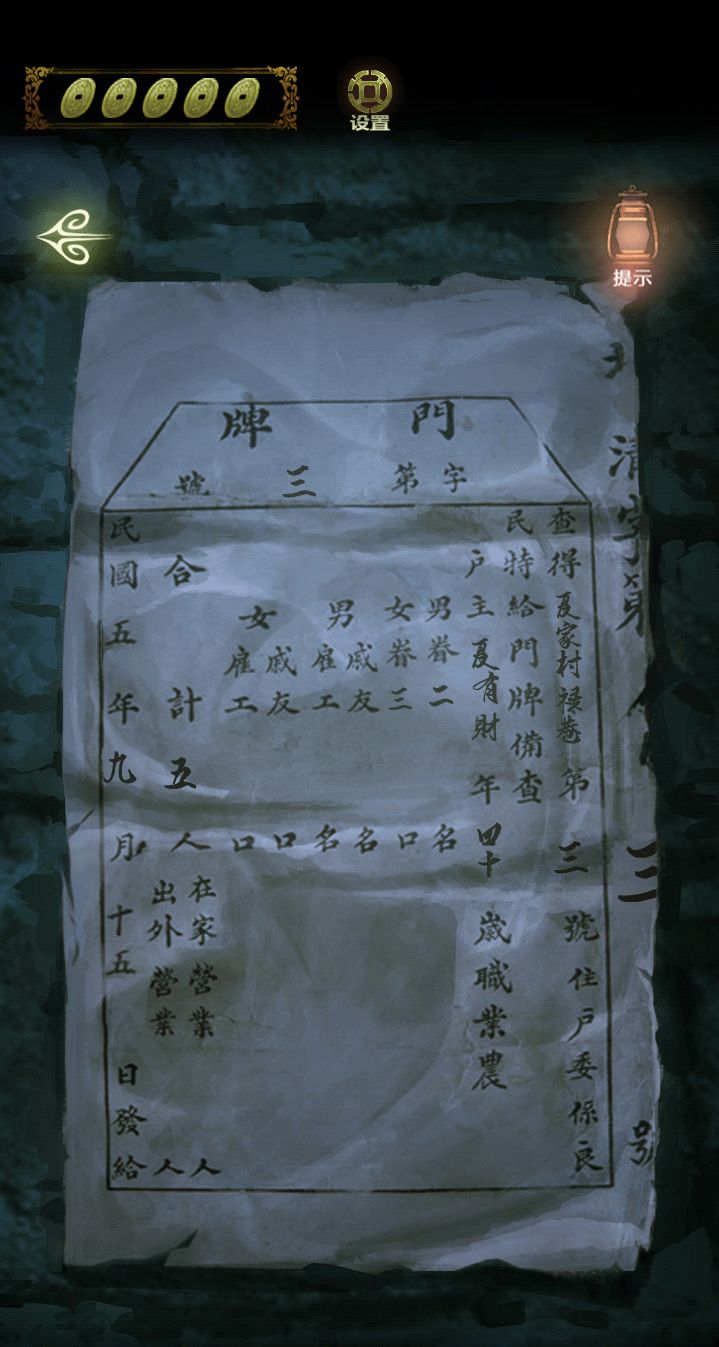 设置
提示
門牌
字第三號
清字第
三
号
查得夏家村禄巷第三號住戶委係良
民特給門牌備查
户主夏有財年四十歲職業農
男眷二名
女眷三口
男
戚友名
雇工名
女
戚友口
雇工口
合計五人
在家營業人
出外營業人
民國五年九月十五日發給